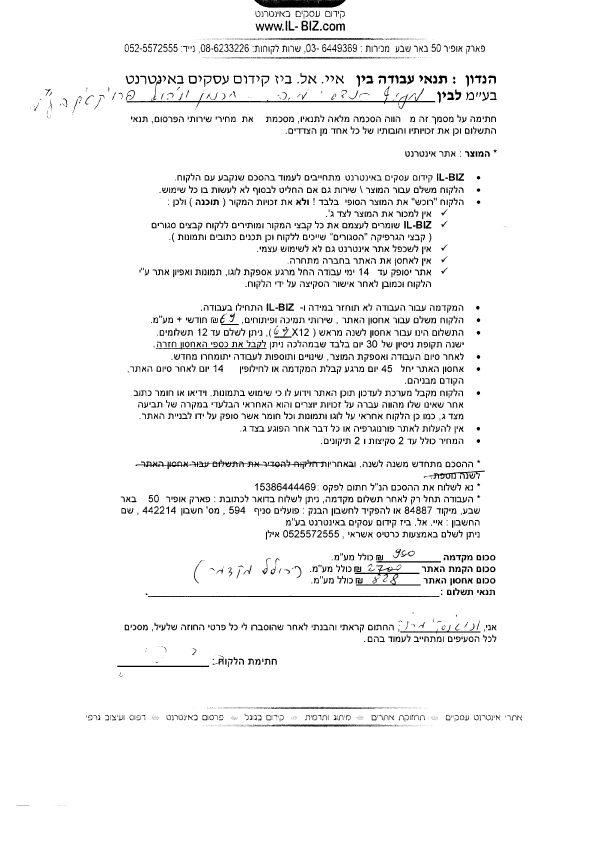 קידום עסקים באינטרנט
www.IL-BIZ.com
פארק אופיר 50 באר שבע מכירות : 03- 6449369, שרות לקוחות: 08-6233226, נייד: 052-5572555
הנדון : תנאי עבודה בין איי. אל. ביז קידום עסקים באינטרנט
בע"מ לבין
חתימה על מסמך זה מ הווה הסכמה מלאה לתנאיו, מסכמת את מחירי שירותי הפרסום, תנאי
התשלום וכן את זכויותיו וחובותיו של כל אחד מן הצדדים.
* המוצר : אתר אינטרנט
• IL-BIZ קידום עסקים באינטרנט מתחייבים לעמוד בהסכם שנקבע עם הלקוח.
• הלקוח משלם עבור המוצר \ שירות גם אם החליט לבסוף לא לעשות בו כל שימוש.
• הלקוח "רוכש" את המוצר הסופי בלבד ! ולא את זכויות המקור ( תוכנה ) ולכן :
✓ אין למכור את המוצר לצד ג'.
✓ IL-BIZ שומרים לעצמם את כל קבצי המקור ומותירים ללקוח קבצים סגורים
( קבצי הגרפיקה "הסגורים" שייכים ללקוח וכן תכנים כתובים ותמונות ).
✓ אין לשכפל אתר אינטרנט גם לא לשימוש עצמי.
✓ אין לאחסן את האתר בחברה מתחרה.
✓ אתר יסופק עד 14 ימי עבודה החל מרגע אספקת לוגו, תמונות ואפיון אתר ע"י
הלקוח וכמובן לאחר אישור הסקיצה על ידי הלקוח.
• המקדמה עבור העבודה לא תוחזר במידה ו- IL-BIZ התחילו בעבודה.
• הלקוח משלם עבור אחסון האתר , שירותי תמיכה ופיתוחים, 69 ₪ חודשי + מע"מ.
• התשלום הינו עבור אחסון לשנה מראש ( 69 X12), ניתן לשלם עד 12 תשלומים.
ישנה תקופת ניסיון של 30 יום בלבד שבמהלכה ניתן לקבל את כספי האחסון חזרה.
• לאחר סיום העבודה ואספקת המוצר, שינויים ותוספות לעבודה יתומחרו מחדש.
• אחסון האתר יחל 45 יום מרגע קבלת המקדמה או לחילופין 14 יום לאחר סיום האתר,
הקודם מבניהם.
• הלקוח מקבל מערכת לעדכון תוכן האתר וידוע לו כי שימוש בתמונות, וידיאו או חומר כתוב
אחר שאינו שלו מהווה עברה על זכויות יוצרים והוא האחראי הבלעדי במקרה של תביעה
מצד ג, כמו כן הלקוח אחראי על לוגו ותמונות וכל חומר אשר סופק על ידו לבניית האתר.
• אין להעלות לאתר פורנוגרפיה או כל דבר אחר הפוגע בצד ג.
• המחיר כולל עד 2 סקיצות ו 2 תיקונים.
* ההסכם מתחדש משנה לשנה. ובאחריות הלקוח להסדיר את התשלום עבור אחסון האתר
לשנה נוספת.
* נא לשלוח את ההסכם הנ"ל חתום לפקס : 15386444469
* העבודה תחל רק לאחר תשלום מקדמה, ניתן לשלוח בדואר לכתובת : פארק אופיר 50 באר
שבע, מיקוד 84887 או להפקיד לחשבון הבנק : פועלים סניף 594 , מס' חשבון 442214 , שם
החשבון : איי. אל. ביז קידום עסקים באינטרנט בע"מ
ניתן לשלם באמצעות כרטיס אשראי , 0525572555 אילן
סכום מקדמה 900 ₪ כולל מע"מ.
סכום הקמת האתר 2700 ₪ כולל מע"מ. (כולל מקדמה)
סכום אחסון האתר 828 ₪ כולל מע"מ.
תנאי תשלום :
אני, החתום קראתי והבנתי לאחר שהוסברו לי כל פרטי החוזה שלעיל, מסכים
לכל הסעיפים ומתחייב לעמוד בהם.
חתימת הלקוח:
אתרי אינטרנט עסקיים תחזוקת אתרים מיתוג ותדמית קידום בגוגל פרסום באינטרנט דפוס ועיצוב גרפי